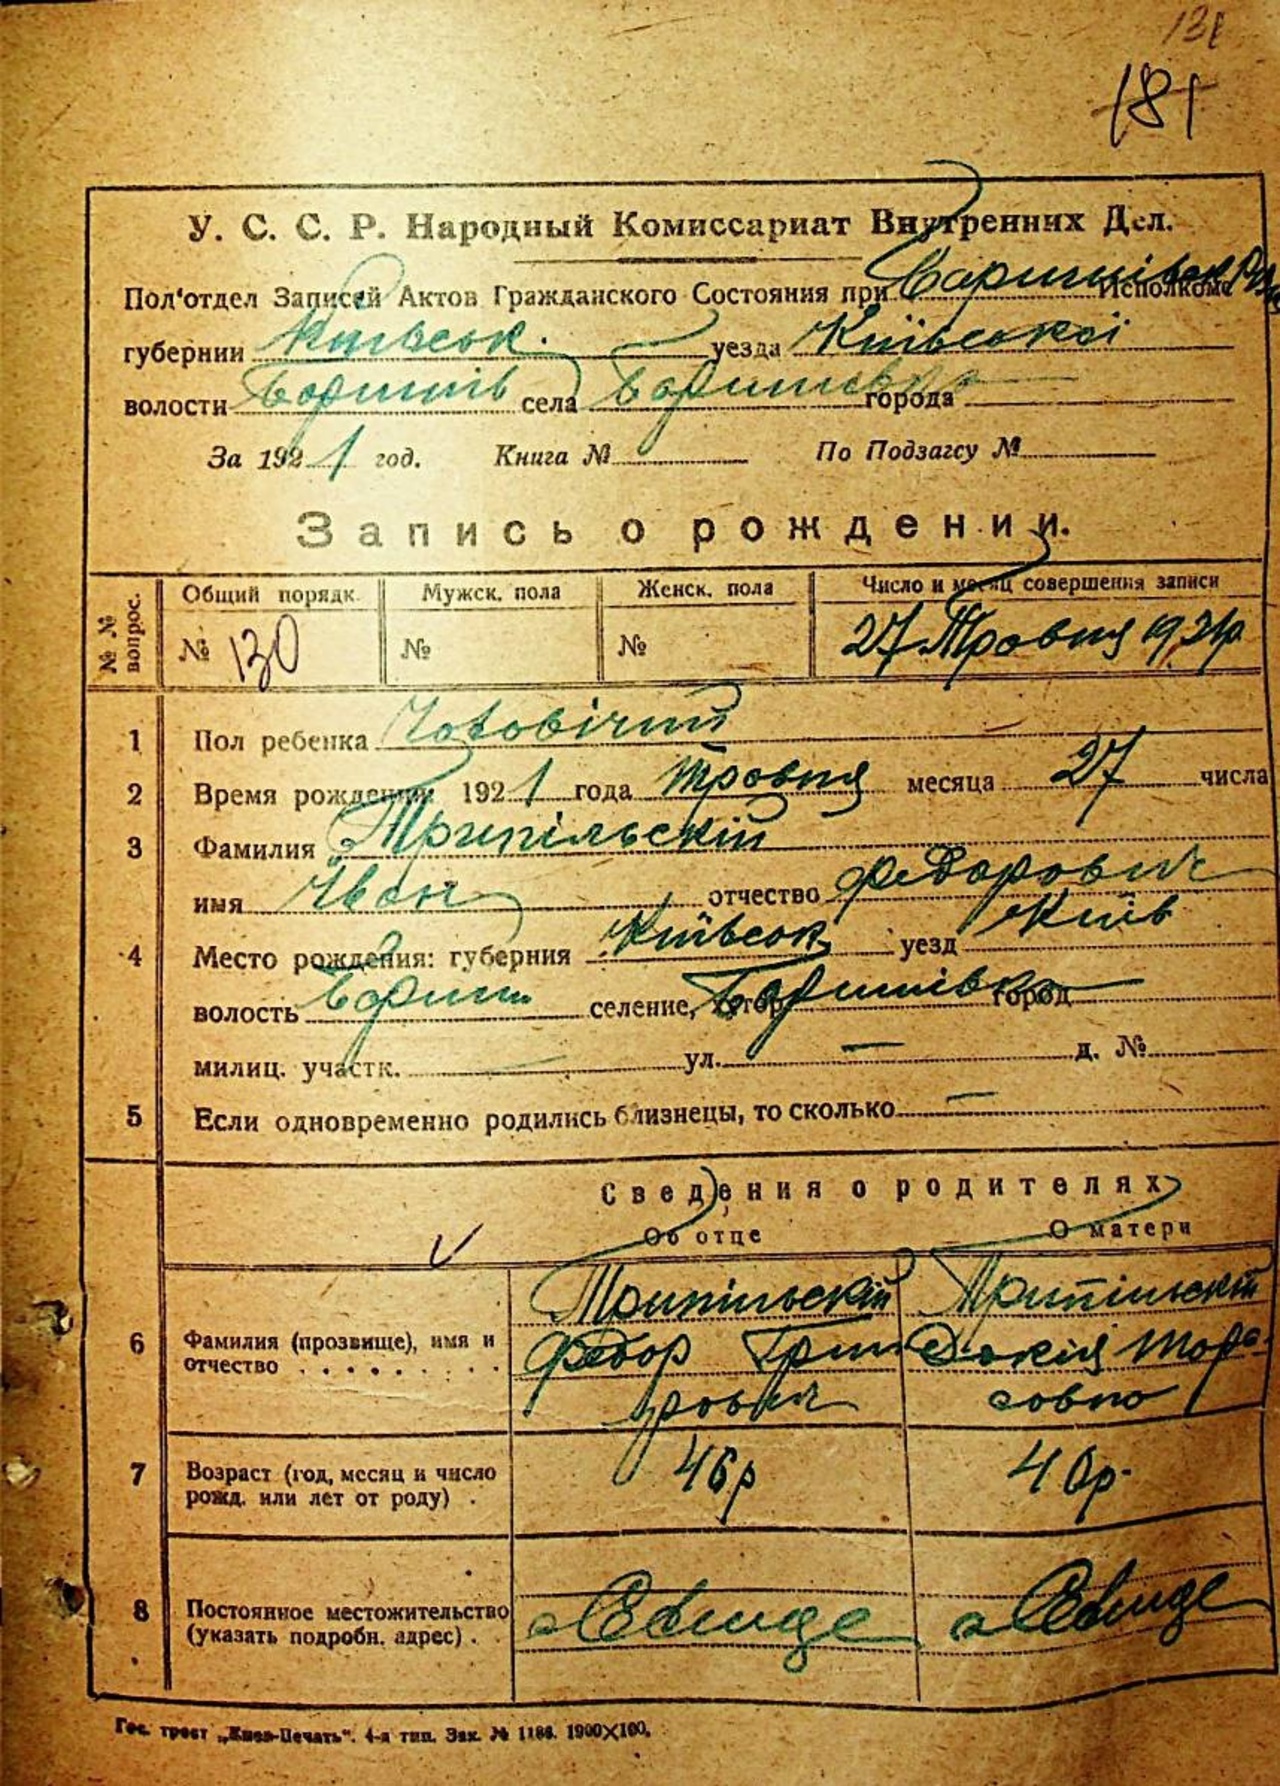 181
У. С. С. Р. Народный Комиссариат Внутренних Дел.
Пол'отдел Записей Актов Гражданского Состояния при Исполкоме
губернии Київськ. уезда Київської
волости Баришів села Баришівка города
За 1921 год. Книга № По Подзагсу №
Запись о рождении.
№ № вопрос.
Общий порядк. Мужск. пола Женск. пола Число и месяц совершения записи
№ 130 № № 27 Травня 1921р
1 Пол ребенка Чоловічий
2 Время рождения 1921 года травня месяца 27 числа
3 Фамилия Трипільскій
имя Іван отчество Федорович
4 Место рождения: губерния Київськ уезд Київ
волость Бариш селение, хутор Баришівка город
милиц. участк. — ул. — д. №
5 Если одновременно родились близнецы, то сколько —
Сведения о родителях
Об отце О матери
6 Фамилия (прозвище), имя и отчество
Трипільскій Федор
Трипільскій
7 Возраст (год, месяц и число рожд. или лет от роду) . 46р 40р.
8 Постоянное местожительство (указать подробн. адрес) .
Гос. трест „Киев-Печать". 4-я тип. Зак. № 1186. 1900×100.